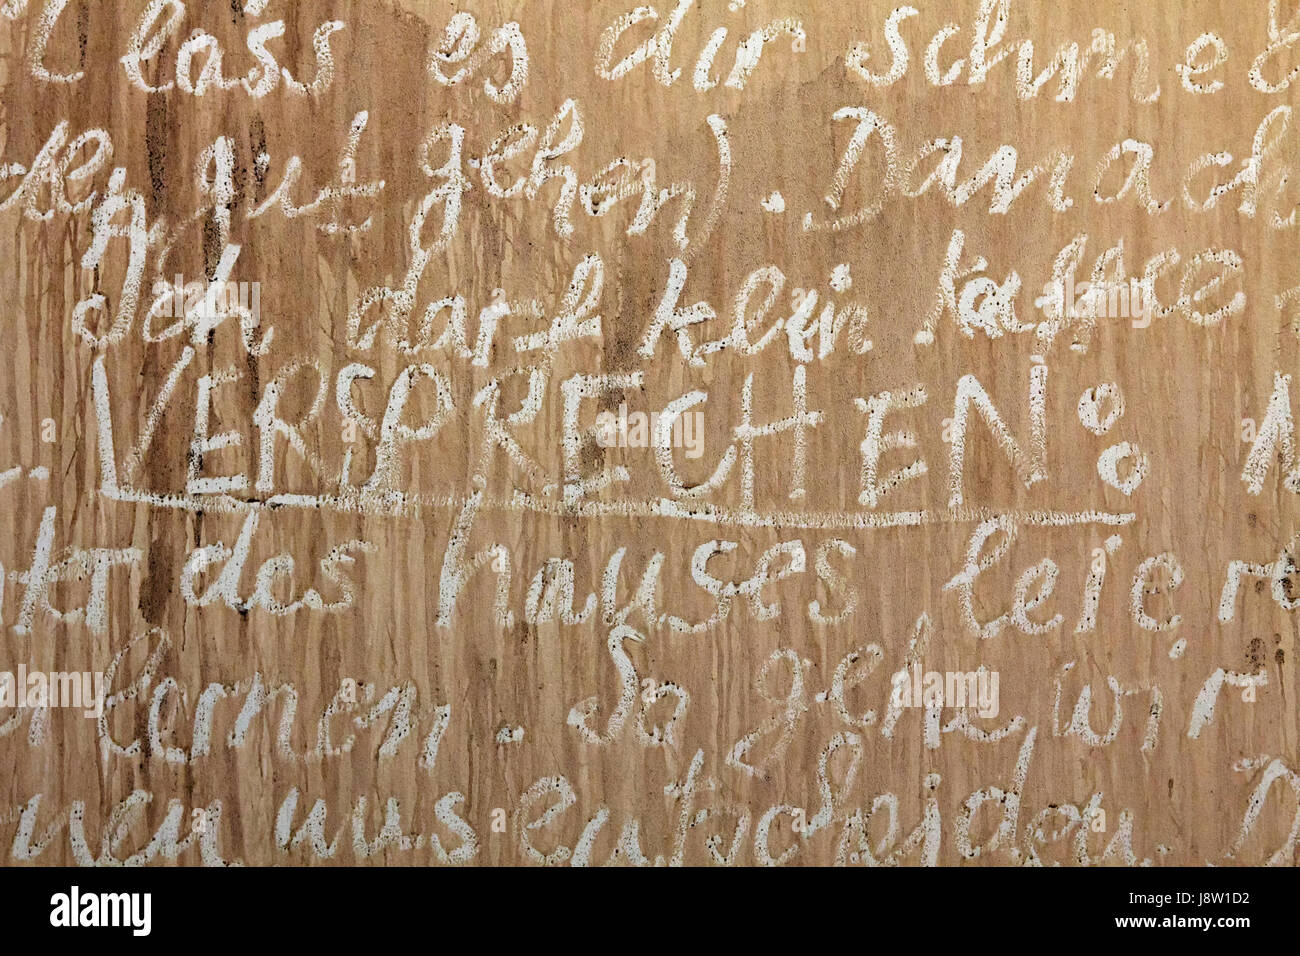 lass es dir schme
ken gut gehen). Danach
Ich darf kein Kaffee
VERSPRECHEN:
des hauses leie
lernen. So gehe, wir
nen uns entscheiden.
alamy
Image ID: J8W1D2
www.alamy.com